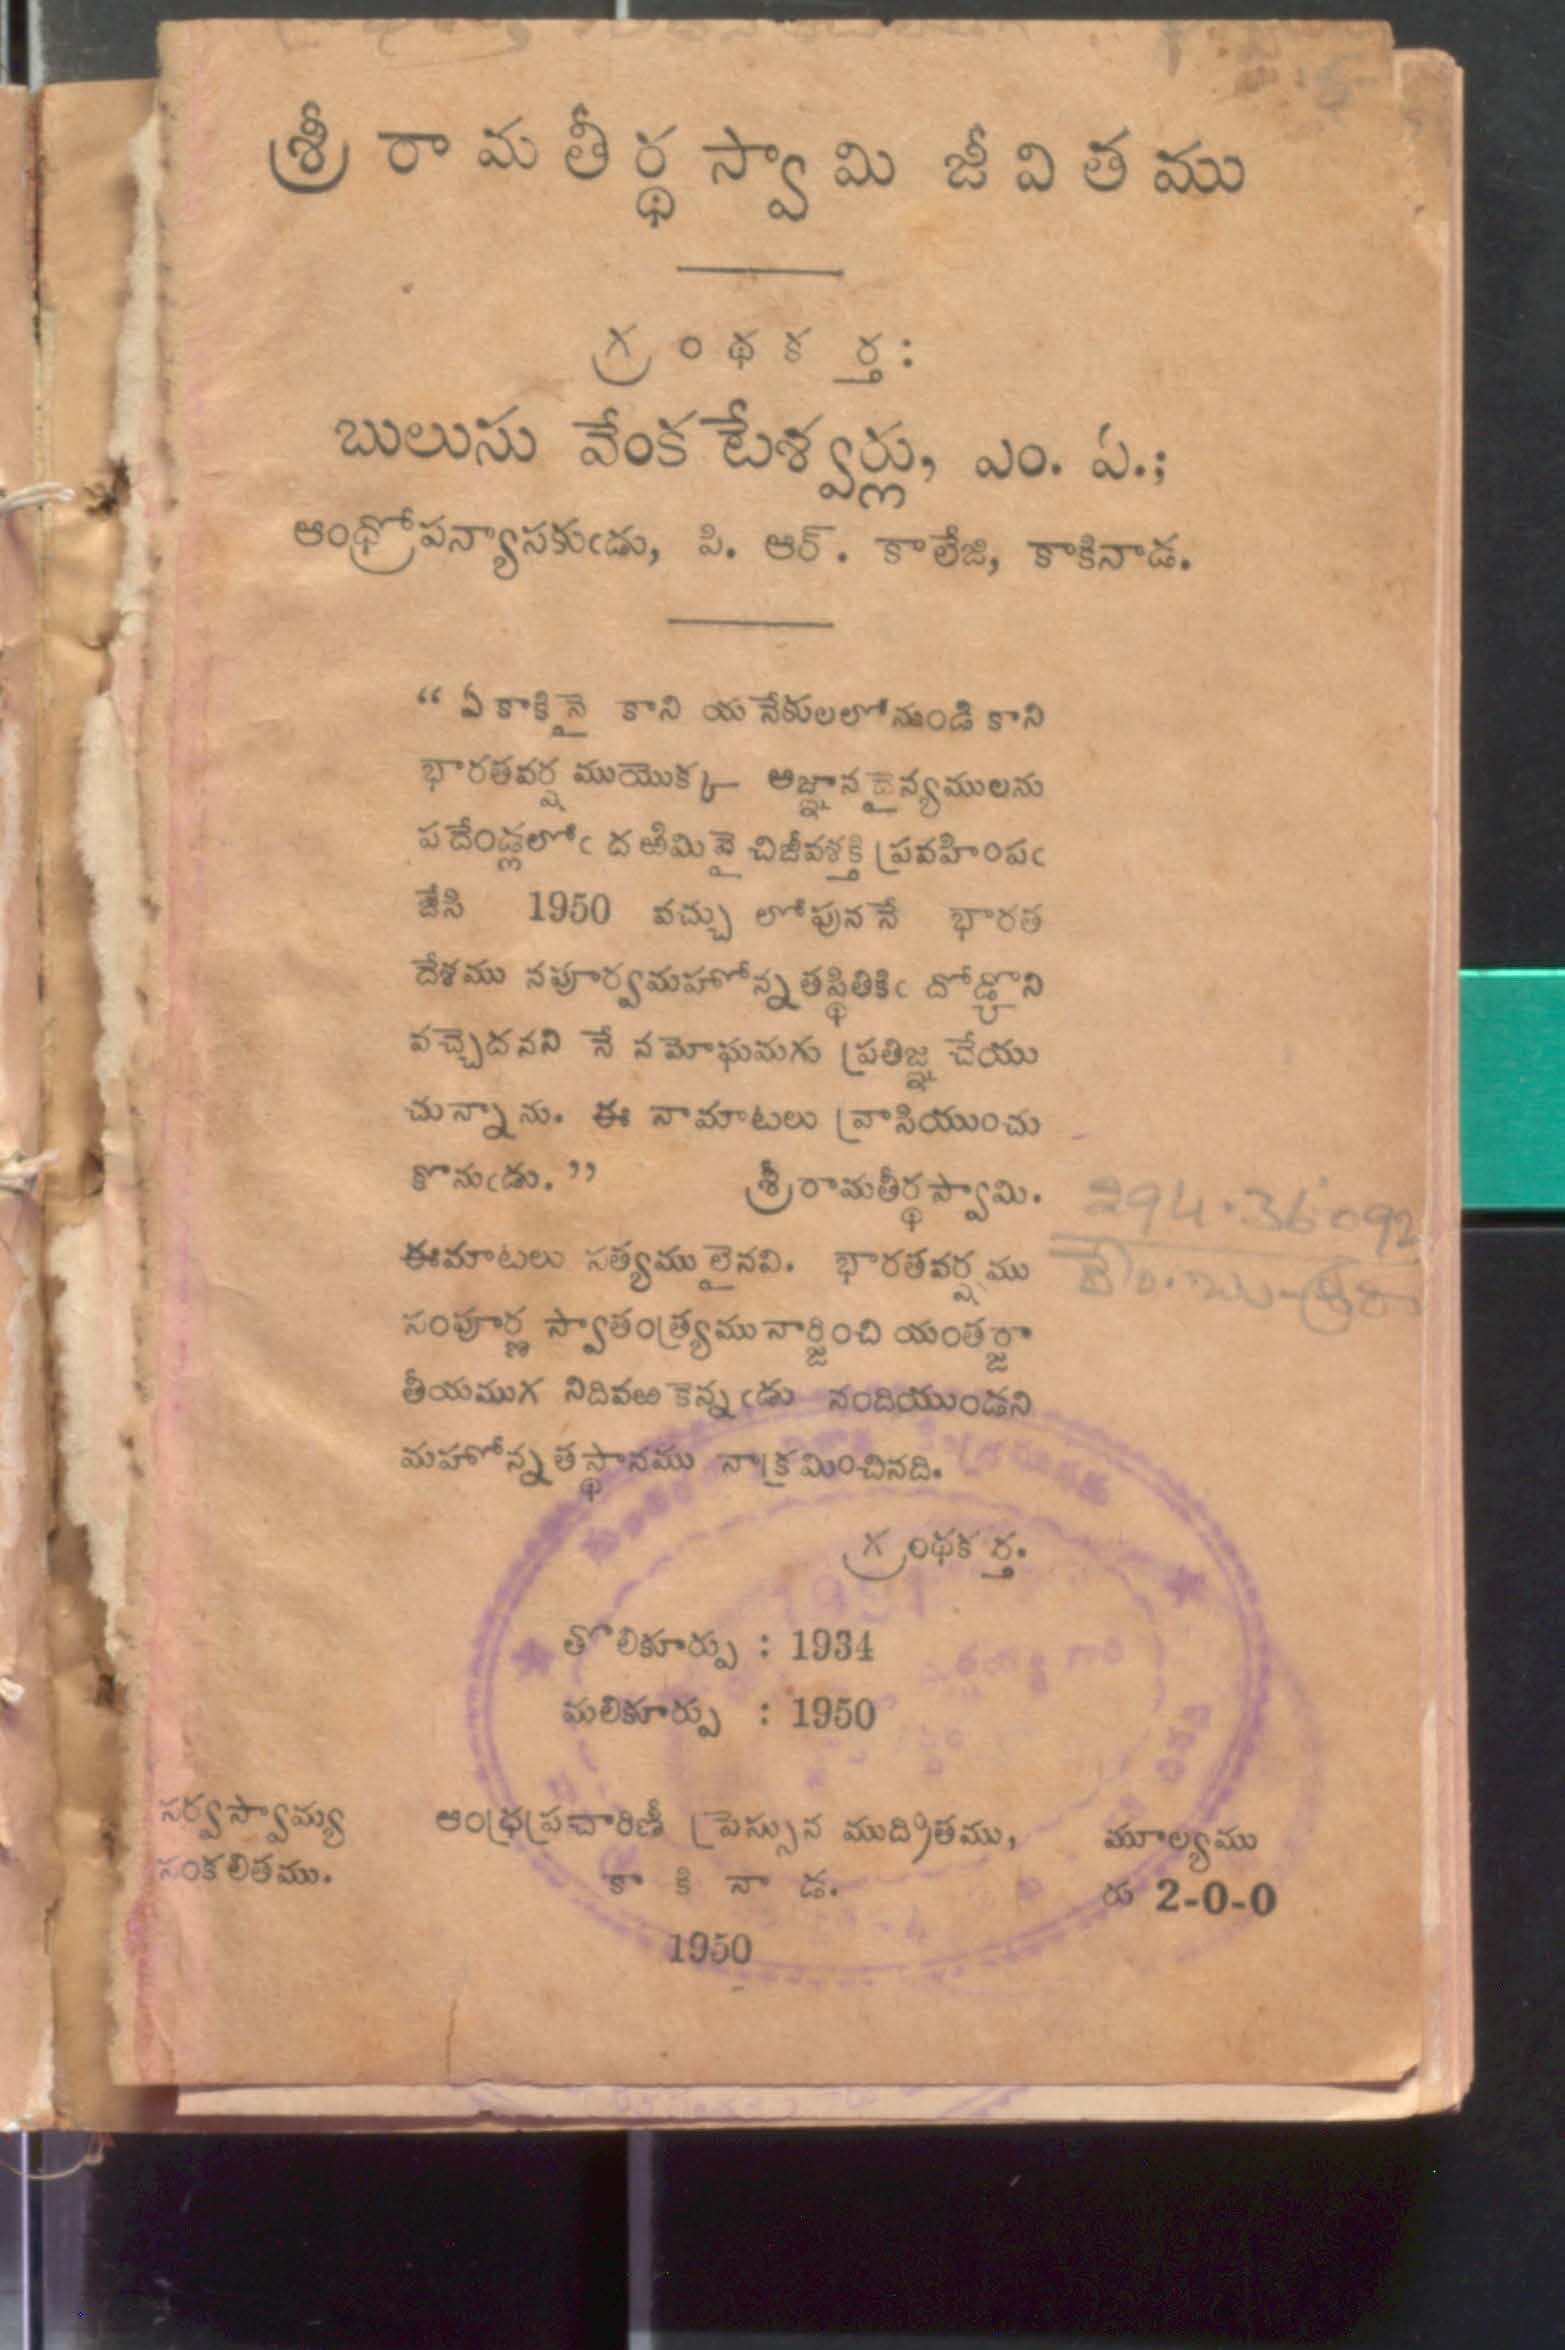 శ్రీ రామతీర్థస్వామి జీవితము
గ్రంథకర్త:
బులుసు వేంకటేశ్వర్లు, ఎం. ఏ.;
ఆంధ్రోపన్యాసకుఁడు, పి. ఆర్. కాలేజి, కాకినాడ.
“ ఏకాకినై కాని యనేకులలోనుండి కాని
భారతవర్షముయొక్క అజ్ఞానదైన్యములను
పదేండ్లలోఁ దఱిమివైచి జీవశక్తి ప్రవహింపఁ
జేసి 1950 వచ్చు లోపుననే భారత
దేశము నపూర్వమహోన్నతస్థితికిఁ దోడ్కొని
వచ్చెదనని నే నమోఘమగు ప్రతిజ్ఞ చేయు
చున్నాను. ఈ నామాటలు వ్రాసియుంచు
కొనుఁడు. ” శ్రీరామతీర్థస్వామి.
ఈమాటలు సత్యములైనవి. భారతవర్షము
సంపూర్ణ స్వాతంత్ర్యము నార్జించి యంతర్జా
తీయముగ నిదివఱకెన్నఁడు నందియుండని
మహోన్నతస్థానము నాక్రమించినది.
గ్రంథకర్త.
తొలికూర్పు : 1934
మలికూర్పు : 1950
సర్వస్వామ్య
సంకలితము.
ఆంధ్రప్రచారిణీ ప్రెస్సున ముద్రితము,
కాకినాడ.
1950
మూల్యము
రు 2-0-0
294.36092